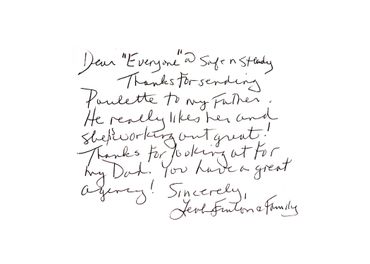 Dear "Everyone" @ Safe n Steady
Thanks for sending
Paulette to my Father.
He really likes her and
she's working out great!
Thanks for looking at for
my Dad. You have a great
agency! Sincerely,
& Family